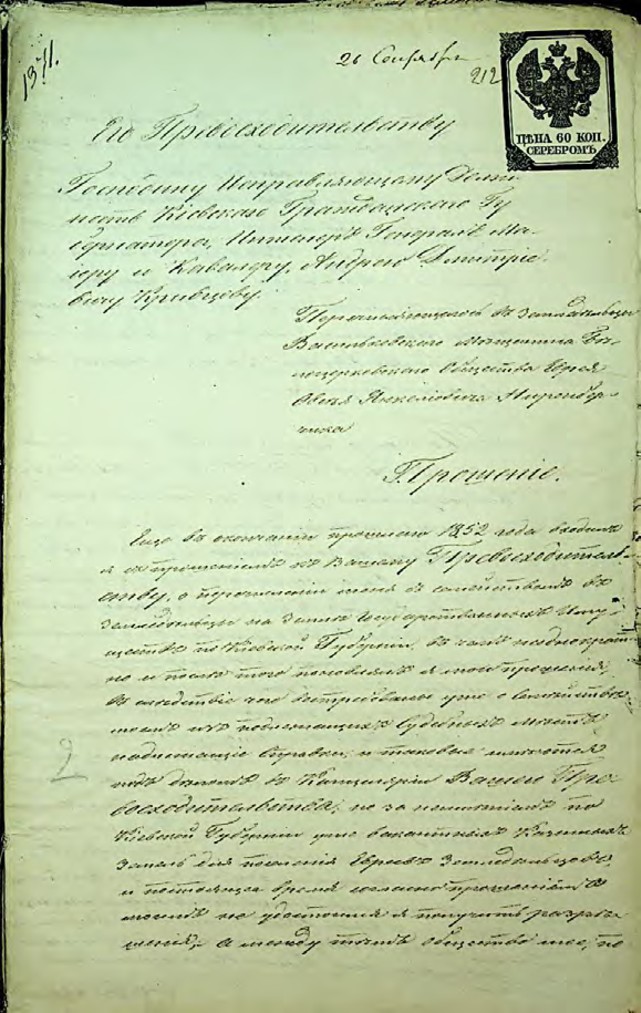 1371.
26 Сентября
212
ЦѢНА 60 КОП.
СЕРЕБРОМЪ
Его Превосходительству
Господину Исправляющему Долж
ность Кіевскаго Гражданскаго Гу
бернатора, Генералъ Ма-
іору и Кавалеру, Андрею Дмитріе
вичу Кривцову.
Перечисляющагося въ Земледѣльцы
Васильковскаго Мѣщанина Бѣ
лоцерковскаго Общества Еврея
Янкелевича
Прошеніе.
Еще въ окончаніи прошлаго 1852 года входилъ
я съ прошеніемъ къ Вашему Превосходитель
ству, о перечисленіи меня съ семействомъ въ
Земледѣльцы на Земли Государственныхъ Иму
ществъ по Кіевской Губерніи, въ чемъ неоднократ
но и послѣ того повторялъ я мои прошенія,
въ слѣдствіе чего вытребованы уже о семействѣ
моемъ изъ подлежащихъ Судебныхъ мѣстъ
надлежащіе Справки, и таковые имѣются
при дѣлѣ въ Канцеляріи Вашего Пре
восходительства; но за неимѣніемъ по
Кіевской Губерніи уже вакантныхъ Казенныхъ
Земель для поселенія Евреевъ Земледѣльцовъ,
въ настоящее время согласно прошеніямъ
моимъ не удостоился я получить разрѣ
шенія, а между тѣмъ общество мое, по
2